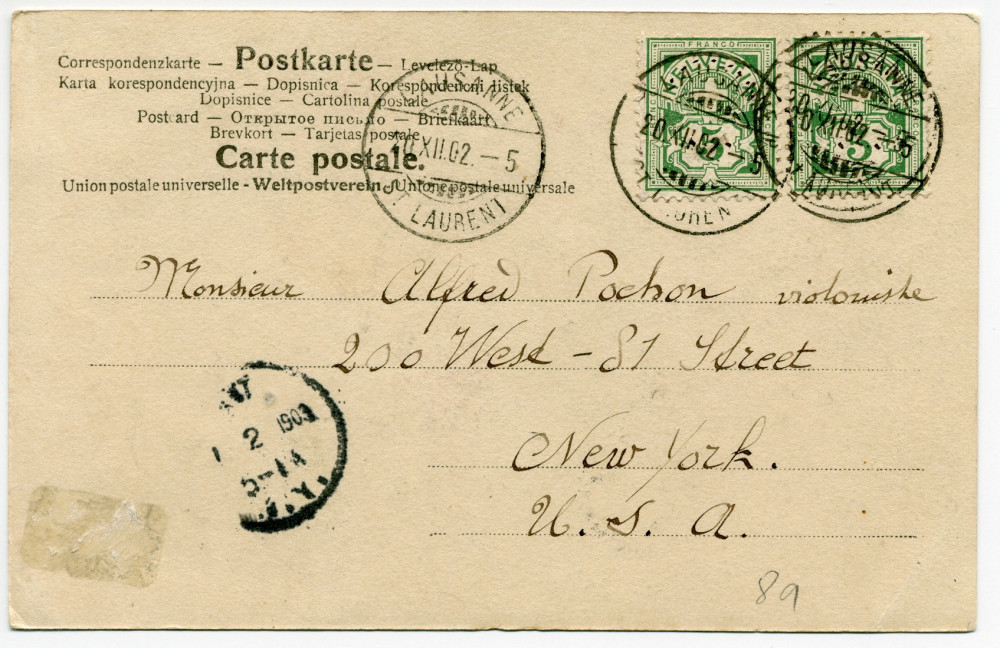 Postkarte
Correspondenzkarte — Levelező-Lap
Karta korespondencyjna — Dopisnica — Korespondenčni listek
Dopisnice — Cartolina postale
Postcard — Открытое письмо — Briefkaart
Brevkort — Tarjetas postale
Carte postale.
Union postale universelle - Weltpostverein - Unione postale universale
LAUSANNE
20.XII.02. — 5
ST LAURENT
FRANCO
5
20.XII.02. — 5
LAUSANNE
20.XII.02. — 5
5
Monsieur Alfred Pochon violoniste
200 West - 81 Street
New York.
U. S. A.
2 1903
89